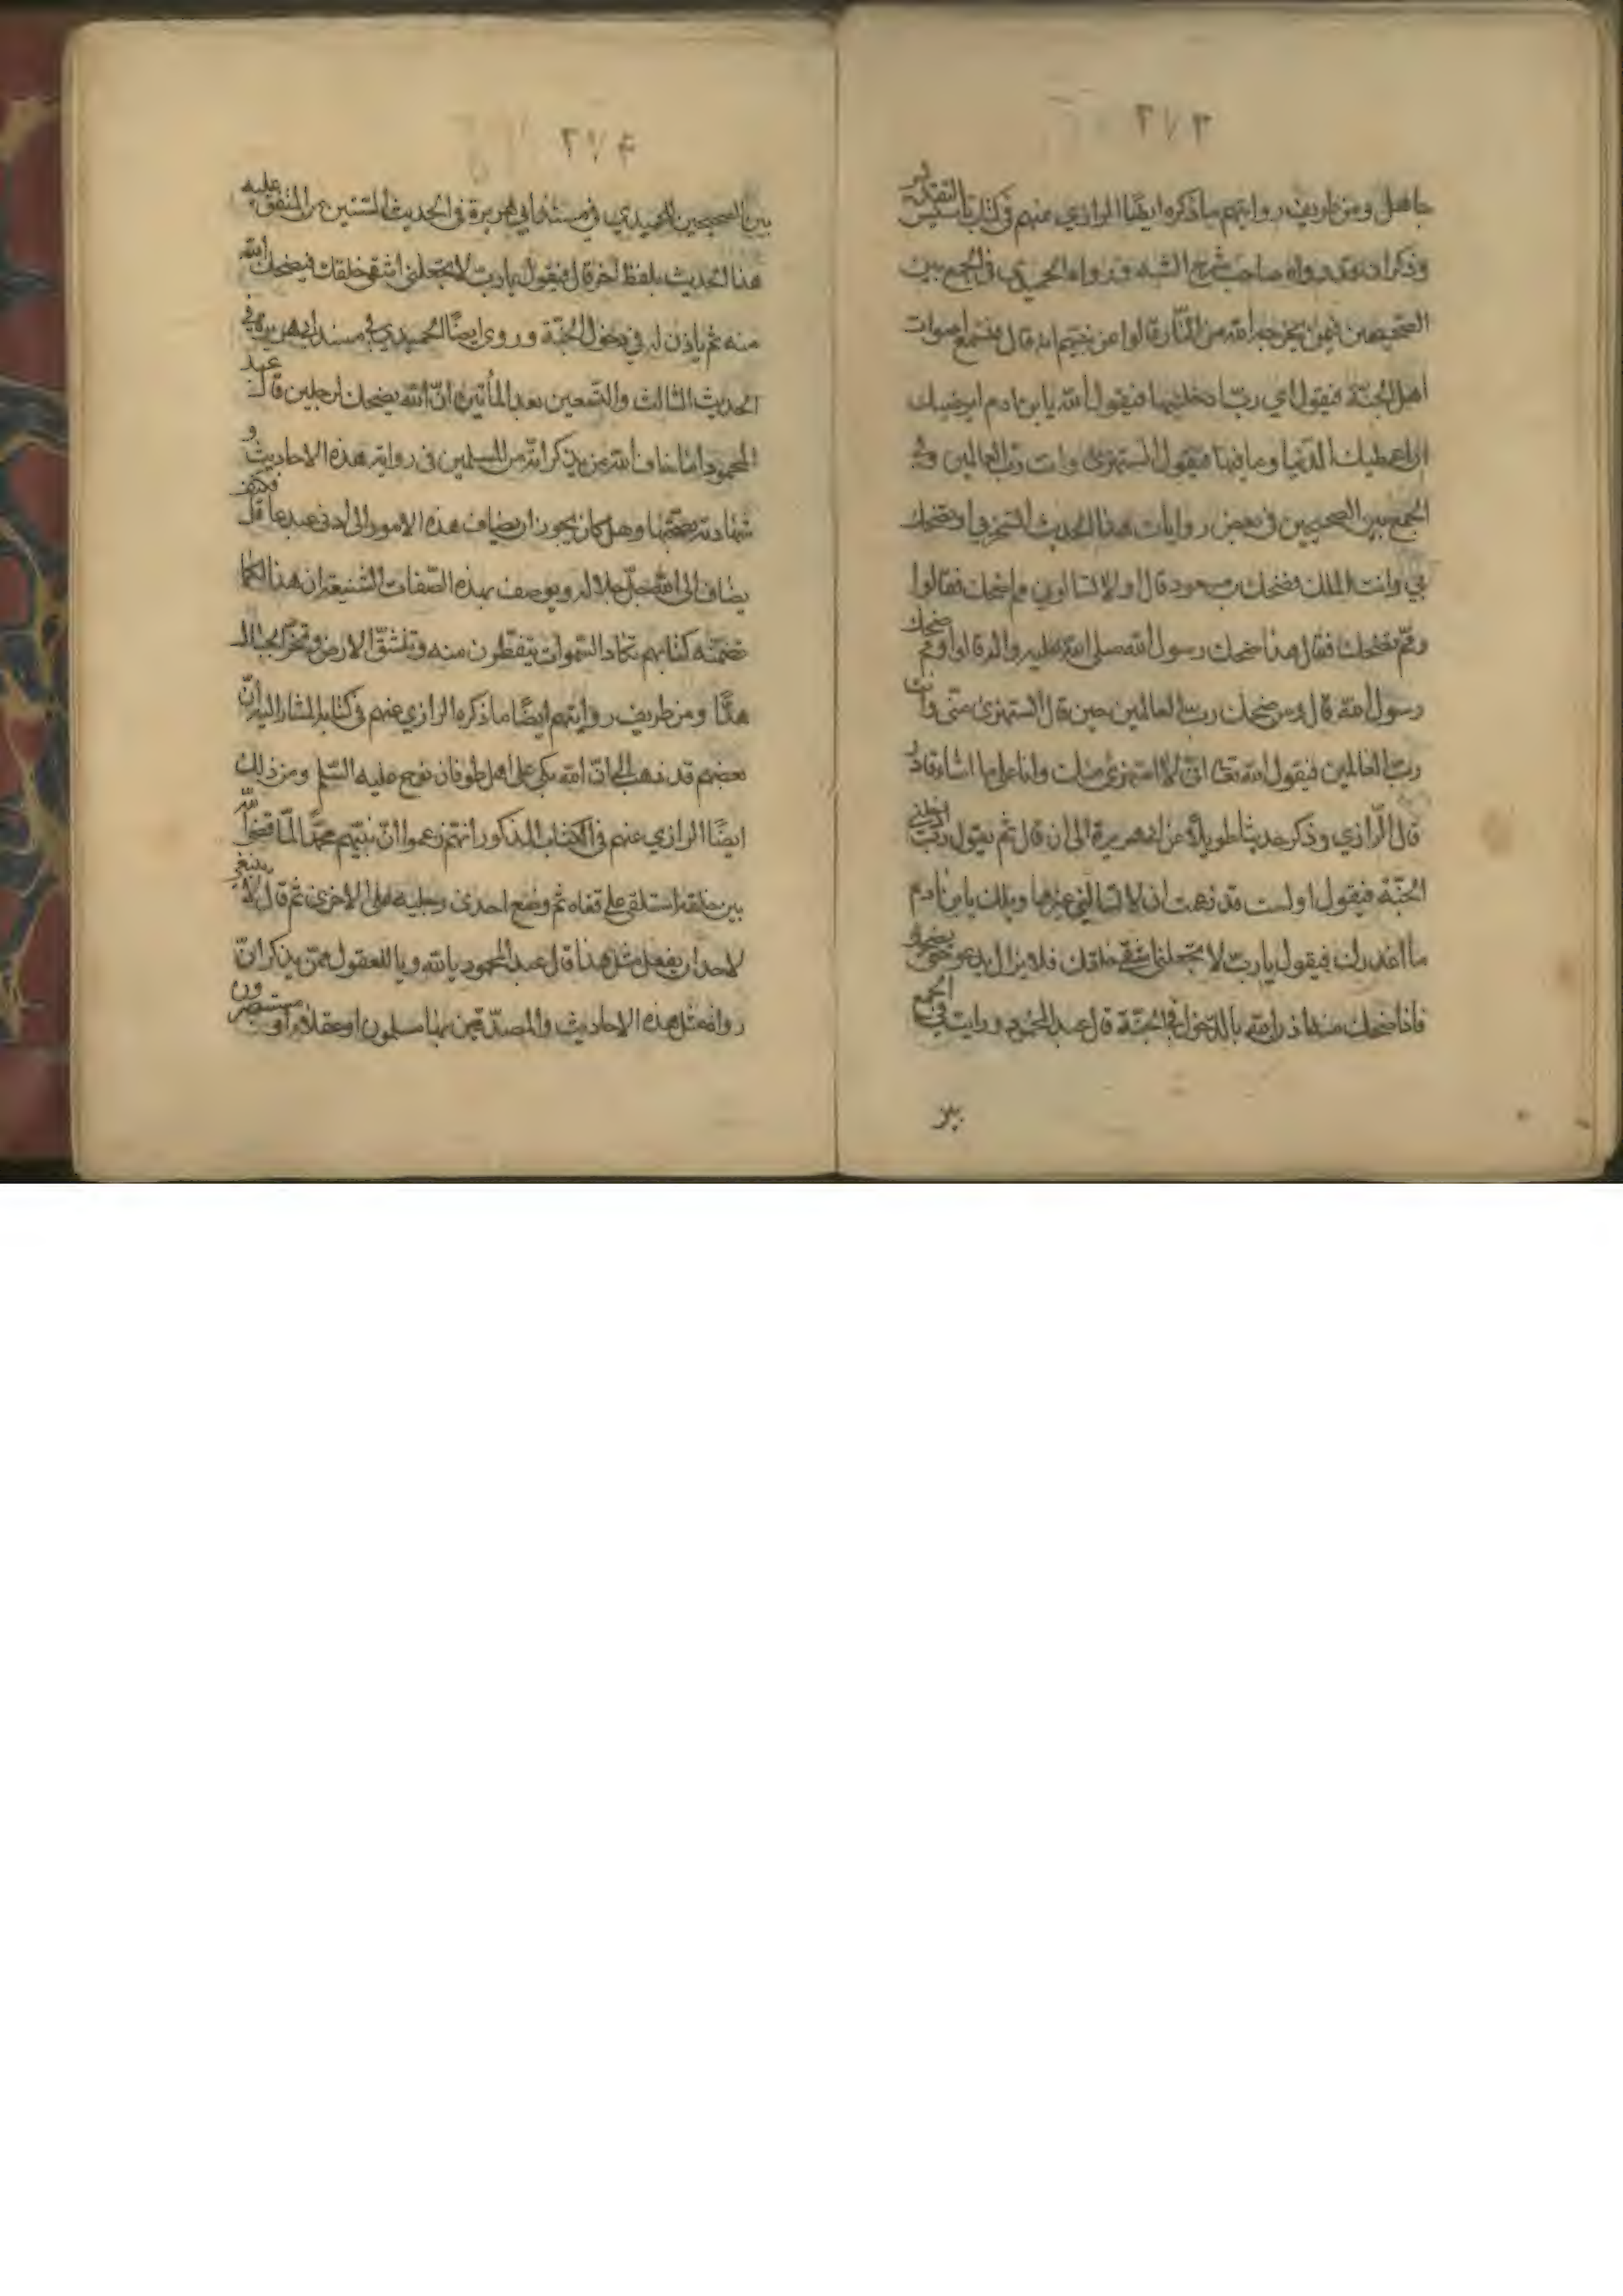 ٢٧٣
جاهل ومن طريف روايتهم ما ذكره ايضا الرازي عنهم في كتاب تاسيس التقديس
وذكر انه قد رواه صاحب شرح السنه ورواه الحميدي في الجمع بين
الصحيحين فيمن يخرجه الله من النار قالوا عن نبيهم انه قال فيسمع اصوات
اهل الجنّة فيقول اي ربّ ادخلنيها فيقول الله يا بن ادم ايرضيك
ان اعطيك الدّنيا وما فيها فيقول اتستهزئ وانت ربّ العالمين وفي
الجمع بين الصحيحين في بعض روايات هذا الحديث اتسخر بي او تضحك
بي وانت الملك فضحك بن مسعود قال ولا تسالوني مم اضحك فقالوا
وممّ تضحك فقال هذا ضحك رسول الله صلى الله عليه واله قالوا وممّ ضحك
رسول الله قال من ضحك رب العالمين حين قال اتستهزئ منّي وانت
ربّ العالمين فيقول الله تعا انّي لا استهزئ منك وانا على ما اشاء قادر
قال الرّازي وذكر حديثا طويلاً عن ابي هريرة الى ان قال ثم يقول ربّ ادخلني
الجنّة فيقول او لست قد زعمت ان لا تسالني غيرها ويلك يا بن ادم
ما اغدرك فيقول يا ربّ لا تجعلني اشقى خلقك فلا يزال يدعو حتى يضحك
فاذا ضحك منه اذن له بالدّخول في الجنّة قال عبد المحمود ورايت في الجمع
بين
٢٧٤
بين الصحيحين للحميدي في مسند ابي هريرة في الحديث الستين من المتفق عليه
هذا الحديث بلفظ اخر قال فيقول يا ربّ لا تجعلني اشقى خلقك فيضحك الله
منه ثم ياذن له في دخول الجنّة وروى ايضًا الحميدي في مسند ابي هريرة في
الحديث الثالث والتسعين بعد المأتين انّ الله يضحك لرجلين قال عبد
المحمود اما خاف الله من يذكر انه من المسلمين في رواية هذه الاحاديث و
شهادته بصحّتها وهل كان يجوز ان يضاف هذه الامور الى ادنى عبد عاقل فكيف
يضاف الى الله جلّ جلاله ويوصف بهذه الصّفات الشنيعة ان هذا لممّا
تضمنه كتابهم تكاد السّموات يتفطّرن منه وتنشقّ الارض وتخرّ الجبال
هدًّا ومن طريف روايتهم ايضًا ما ذكره الرازي عنهم في كتابه المشار اليه انّ
بعضهم قد ذهب الى انّ الله بكى على اهل طوفان نوح عليه السّلم ومن ذلك
ايضًا الرازي عنهم في الكتاب المذكور انهم زعموا انّ نبيّهم محمّدًا قال لمّا قضى الله
بين خلقه استلقى على قفاه ثم وضع احدى رجليه على الاخرى ثم قال لا ينبغي
لاحد ان يفعل مثل هذا قال عبد المحمود يا لله ويا للعقول ممّن يذكر انّ
رواة مثل هذه الاحاديث والمصدّقين بها مسلمون او عقلاء او مستبصرون